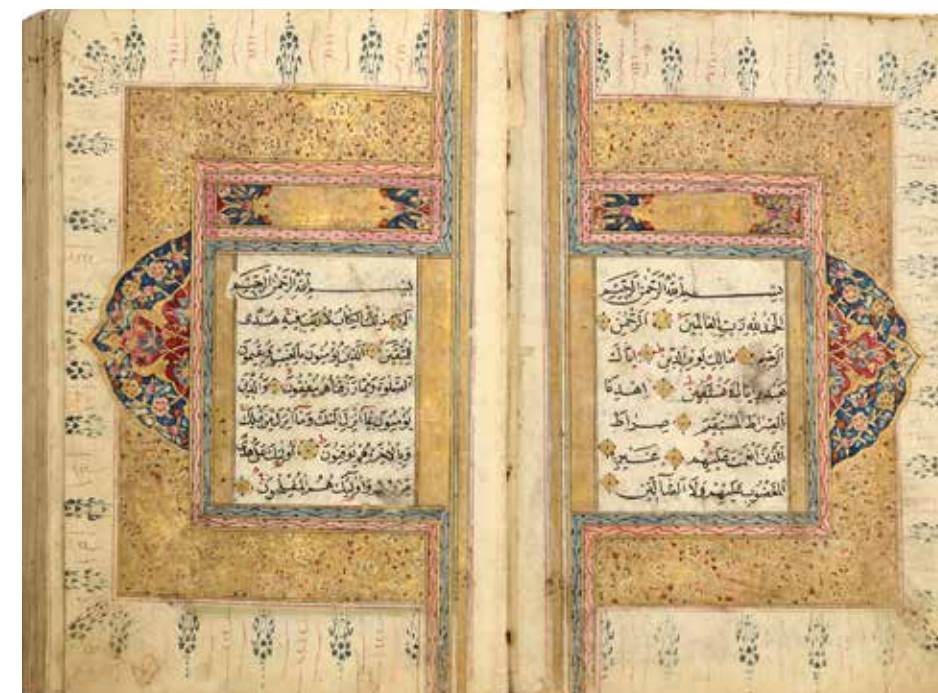 بِسْمِ اللهِ الرَّحْمٰنِ الرَّحِيمِ
اَلْحَمْدُ لِلهِ رَبِّ الْعَالَمِينَ اَلرَّحْمٰنِ
الرَّحِيمِ مَالِكِ يَوْمِ الدِّينِ اِيَّاكَ
نَعْبُدُ وَاِيَّاكَ نَسْتَعِينُ اِهْدِنَا
الصِّرَاطَ الْمُسْتَقِيمَ صِرَاطَ
الَّذِينَ اَنْعَمْتَ عَلَيْهِمْ غَيْرِ
الْمَغْضُوبِ عَلَيْهِمْ وَلَا الضَّالِّينَ
بِسْمِ اللهِ الرَّحْمٰنِ الرَّحِيمِ
الم ذٰلِكَ الْكِتَابُ لَا رَيْبَ فِيهِ هُدًى
لِلْمُتَّقِينَ اَلَّذِينَ يُؤْمِنُونَ بِالْغَيْبِ وَيُقِيمُونَ
الصَّلٰوةَ وَمِمَّا رَزَقْنَاهُمْ يُنْفِقُونَ وَالَّذِينَ
يُؤْمِنُونَ بِمَا اُنْزِلَ اِلَيْكَ وَمَا اُنْزِلَ مِنْ قَبْلِكَ
وَبِالْاٰخِرَةِ هُمْ يُوقِنُونَ اُولٰئِكَ عَلٰى هُدًى
مِنْ رَبِّهِمْ وَاُولٰئِكَ هُمُ الْمُفْلِحُونَ